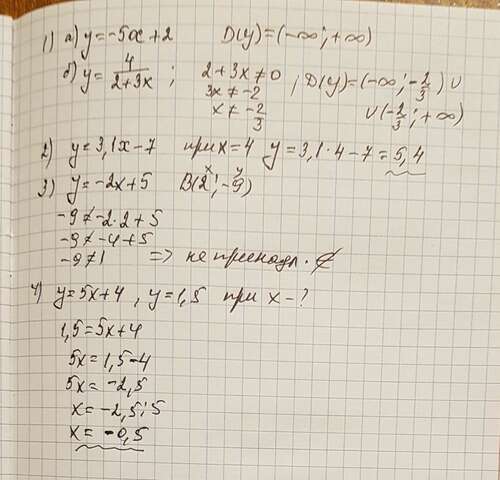 1) а) y = -5x + 2    D(y) = (-∞; +∞)
б) y = 4/(2+3x) ;   2+3x ≠ 0 , D(y) = (-∞; -2/3) ∪
3x ≠ -2
x ≠ -2/3    ∪ (-2/3; +∞)
2) y = 3,1x - 7   при x = 4   y = 3,1 · 4 - 7 = 5,4
3) y = -2x + 5   B(2; -9)   x y
-9 ≠ -2·2 + 5
-9 ≠ -4 + 5
-9 ≠ 1   => не принадл. ∉
4) y = 5x + 4 , y = 1,5   при x - ?
1,5 = 5x + 4
5x = 1,5 - 4
5x = -2,5
x = -2,5 : 5
x = -0,5